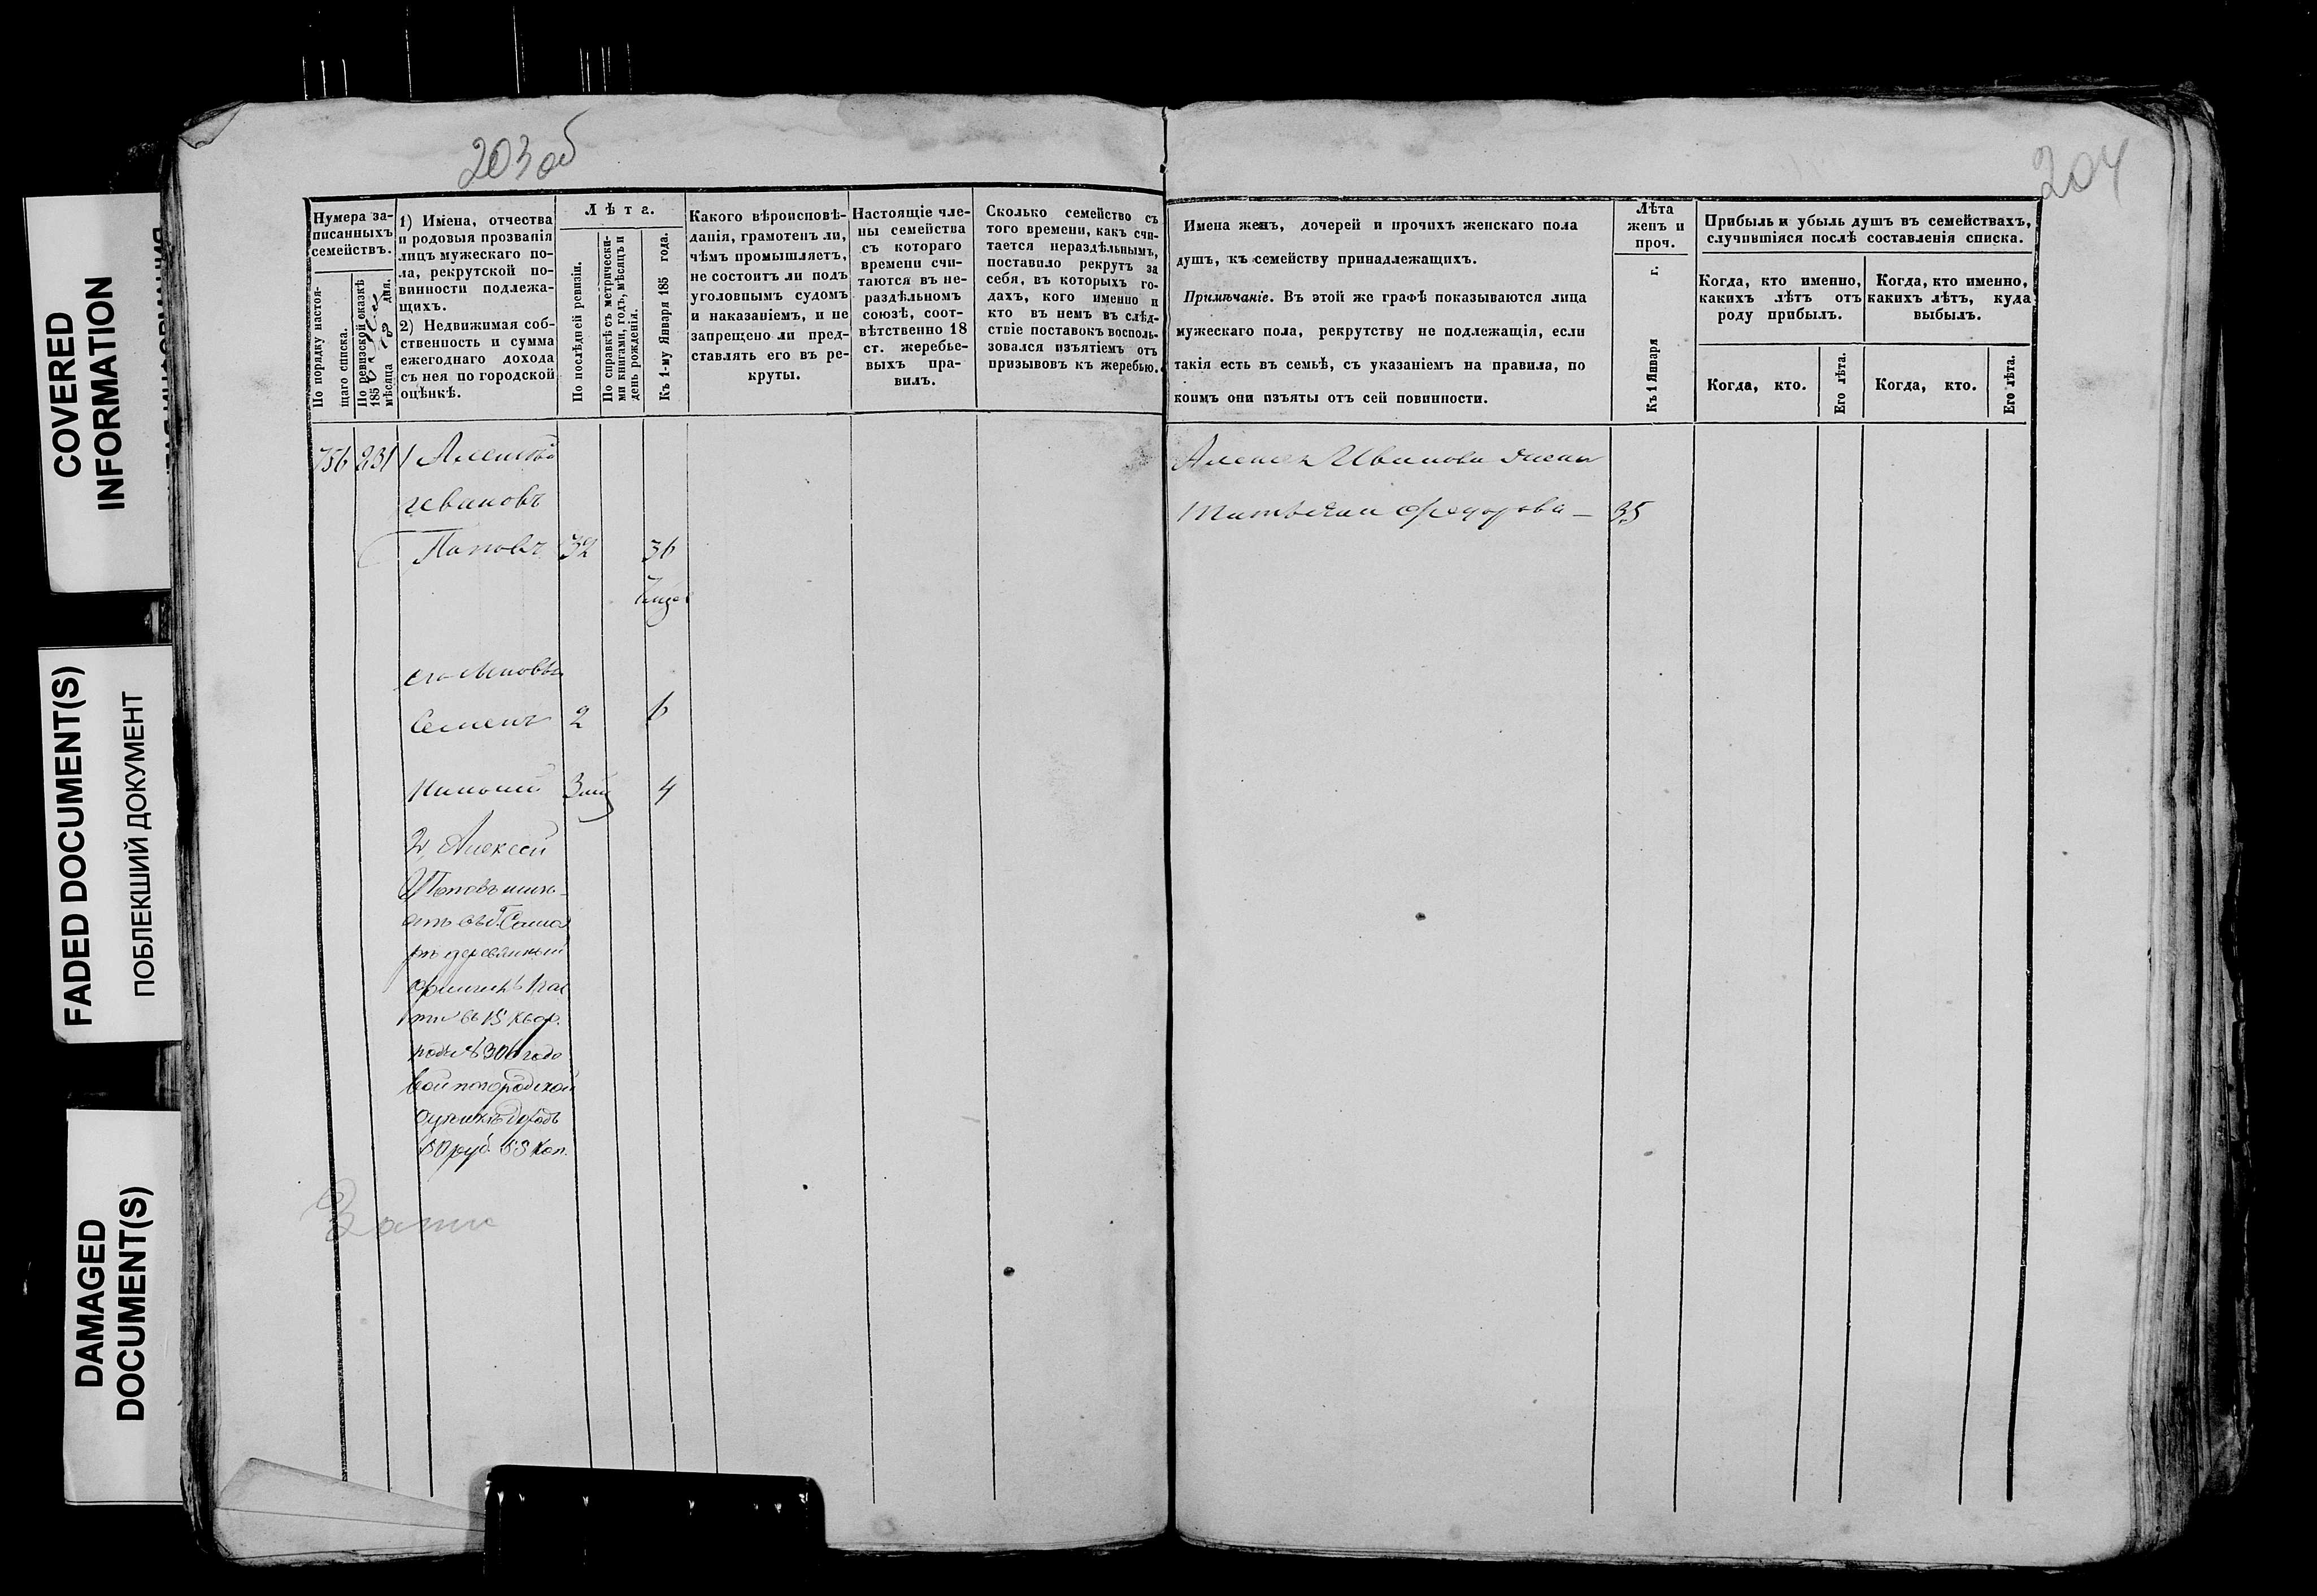 COVERED
INFORMATION
FADED DOCUMENT(S)
ПОБЛЕКШИЙ ДОКУМЕНТ
DAMAGED
DOCUMENT(S)
203 об
Нумера за-
писанныхъ
семействъ.
По порядку настоя-
щаго списка.
По ревизской сказкѣ
185
мѣсяца дня.
1) Имена, отчества
и родовыя прозванія
лицъ мужескаго по-
ла, рекрутской по-
винности подлежа-
щихъ.
2) Недвижимая соб-
ственность и сумма
ежегоднаго дохода
съ нея по городской
оцѣнкѣ.
Лѣта.
По послѣдней ревизіи.
По справкѣ съ метрически-
ми книгами, годъ, мѣсяцъ и
день рожденія.
Къ 1-му Января 185 года.
Какого вѣроисповѣ-
данія, грамотенъ ли,
чѣмъ промышляетъ,
не состоитъ ли подъ
уголовнымъ судомъ
и наказаніемъ, и не
запрещено ли пред-
ставлять его въ ре-
круты.
Настоящіе чле-
ны семейства
съ котораго
времени счи-
таются въ не-
раздѣльномъ
союзѣ, соот-
вѣтственно 18
ст. жеребье-
выхъ пра-
вилъ.
Сколько семейство съ
того времени, какъ счи-
тается нераздѣльнымъ,
поставило рекрутъ за
себя, въ которыхъ го-
дахъ, кого именно и
кто въ немъ въ слѣд-
ствіе поставокъ восполь-
зовался изъятіемъ отъ
призывовъ къ жеребью.
756 231 1 Алексѣй
Ивановъ
Поповъ 32 36
его сыновья
Семенъ 2 6
3 4
2, Алексей
Поповъ имѣ-
етъ въ г. Сама
рѣ деревянный
флигель въ 1 час
ти въ 15 квар.
подъ № 306 годо
вой по городской
оцѣнкѣ доходъ
руб. коп.
204
Имена женъ, дочерей и прочихъ женскаго пола
душъ, къ семейству принадлежащихъ.
Примѣчаніе. Въ этой же графѣ показываются лица
мужескаго пола, рекрутству не подлежащія, если
такія есть въ семьѣ, съ указаніемъ на правила, по
коимъ они изъяты отъ сей повинности.
Лѣта
женъ и
проч.
Къ 1 Января г.
Прибыль и убыль душъ въ семействахъ,
случившіяся послѣ составленія списка.
Когда, кто именно,
какихъ лѣтъ отъ
роду прибылъ.
Когда, кто именно,
какихъ лѣтъ, куда
выбылъ.
Когда, кто.
Его лѣта.
Когда, кто.
Его лѣта.
Алексея Иванова жена
Татьяна Федорова — 35